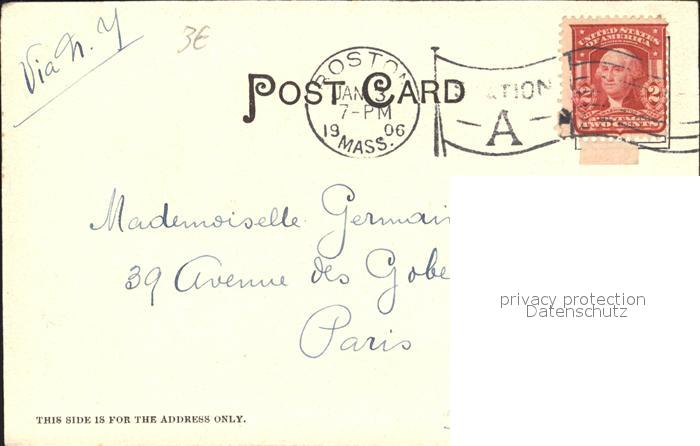 Via N. Y
3€
UNITED STATES
OF AMERICA
BOSTON
JAN 3
7-PM
19 06
MASS.
POST CARD
STATION
A
2 2
POSTAGE
TWO CENTS
Mademoiselle Germain
39 Avenue des Gobe
Paris
privacy protection
Datenschutz
THIS SIDE IS FOR THE ADDRESS ONLY.